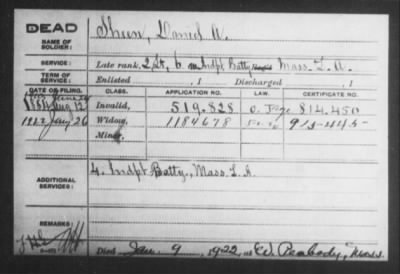 DEAD
NAME OF SOLDIER:
Sheen, Daniel A.
SERVICE:
Late rank, 2 Lt, 6 Indpt Batty Mass. L. A.
TERM OF SERVICE:
Enlisted , 1 Discharged , 1
DATE OF FILING. CLASS. APPLICATION NO. LAW. CERTIFICATE NO.
1884 Aug 12 Invalid, 519.828 814.450
1922 Jany 26 Widow, 1184678 915-445
Minor,
ADDITIONAL SERVICES:
4. Indpt Batty., Mass. L. A.
REMARKS:
Died Jan. 9, 1922, at W. Peabody, Mass.